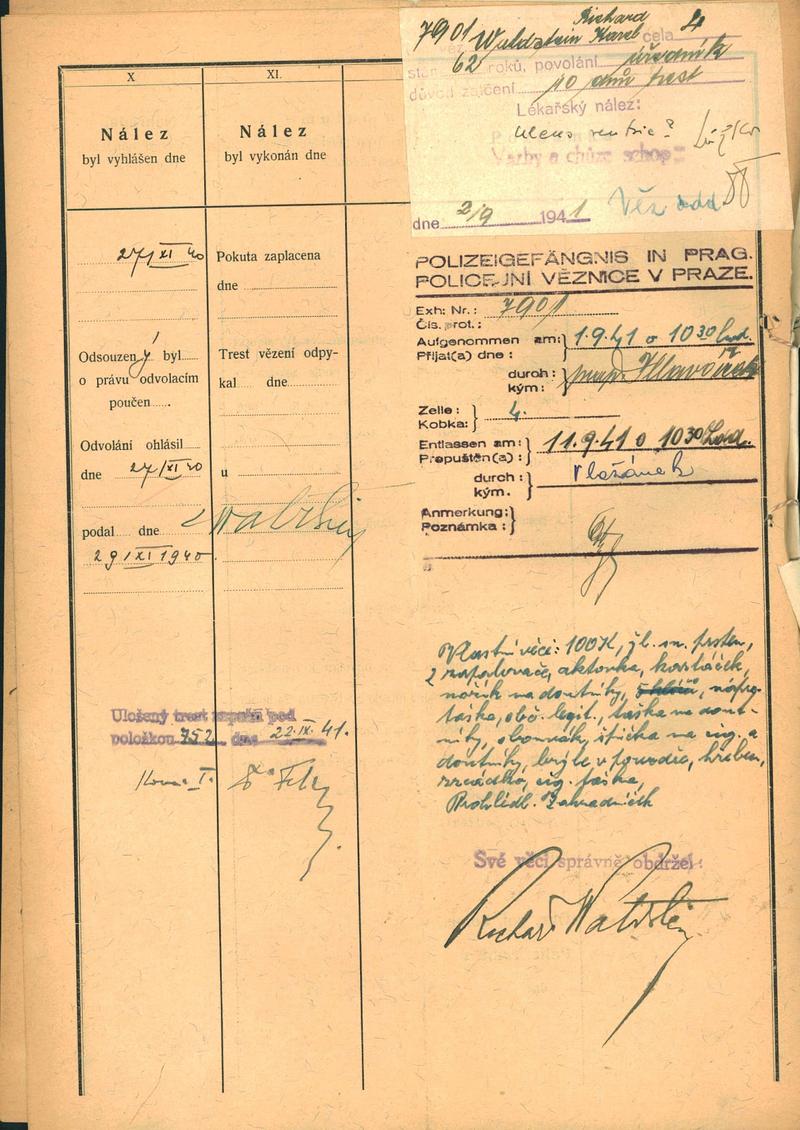 X
Nález
byl vyhlášen dne
27/XI 40
Odsouzený byl
o právu odvolacím
poučen
Odvolání ohlásil
dne 27/XI 40
podal dne
29/XI 1940
Uložený trest zapsán pod
položkou 752 dne 22.IX.41.
XI.
Nález
byl vykonán dne
Pokuta zaplacena
dne
Trest vězení odpy-
kal dne
u
7901 Richard
Waldstein Karel cela 4
62 roků, povolání úředník
důvod zatčení 10 dnů trest
Lékařský nález:
ulcus ventric?
Vazby a chůze schop
dne 2/9 1941
POLIZEIGEFÄNGNIS IN PRAG.
POLICEJNÍ VĚZNICE V PRAZE.
Exh: Nr.: 7901
Čís. prot.:
Aufgenommen am: 1.9.41 o 10 30 hod.
Přijat(a) dne:
durch:
kým:
Zelle: 4.
Kobka:
Entlassen am: 11.9.41 o 10 30 hod.
Propuštěn(a):
durch:
kým.
Anmerkung:
Poznámka:
Vlastní věci: 100K, žl. sn. prsten,
2 zapalovače, aktovka, kartáček,
nožík na doutníky,
taška, obč. legit., taška na dout-
níky,
doutníky, brýle v pouzdře, hřeben,
zrcádko, cig. taška,
Prohlédl.
Své věci správně obdržel:
Richard Waldstein